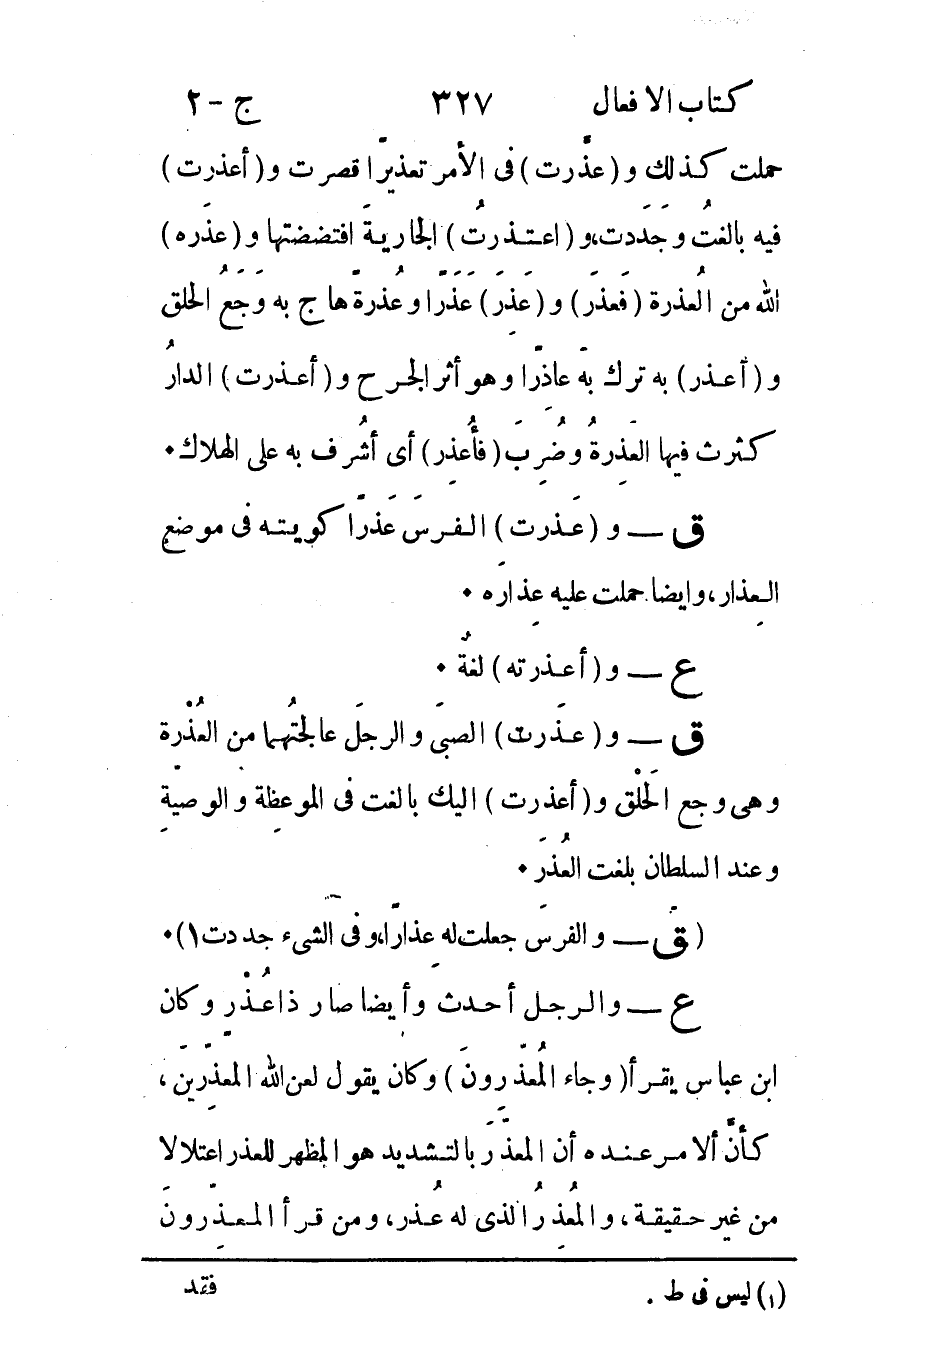 كتاب الافعال ٣٢٧ ج - ٢
حملت كذلك و (عذَّرت) فى الأمر تعذيرًا قصرت و (أعذرت)
فيه بالغت وجَدَدت، و (اعتذرتُ) الجاريةَ افتضضتها و (عذَره)
الله من العُذرة (فعَذر) و (عَذَر) عَذَرًا وعُذرةً هاج به وَجَعُ الحَلق
و (أعذر) به ترك به عاذرًا وهو أثر الجرح و (أعذرت) الدارُ
كثرت فيها العَذِرةُ وضُرِبَ (فأُعذِر) أى أُشرِف به على الهلاك ٠
ق — و (عَذرت) الفرسَ عَذَرًا كويته فى موضع
العِذار، وايضا حملت عليه عِذاره ٠
ع — و (أعذرته) لغةٌ ٠
ق — و (عذَرت) الصبىَّ والرجلَ عالجتُهما من العُذْرة
وهى وجع الحَلْق و (أعذرت) اليك بالغت فى الموعظة والوصيةِ
وعند السلطانِ بلغت العُذرَ ٠
(ق — والفرسَ جعلت له عذارًا، وفى الشىء جددت ١) ٠
ع — والرجل أحدث وأيضا صار ذا عُذْرٍ وكان
ابن عباس يقرأ (وجاء المُعْذِرونَ) وكان يقول لعن الله المعذِّرين،
كأنَّ ألامر عنده أن المعذِّرَ بالتشديد هو المظهر للعذر اعتلالا
من غير حقيقة، والمُعْذِرُ الذى له عُذر، ومن قرأ المعذِّرونَ
(١) ليس فى ط .
فقد